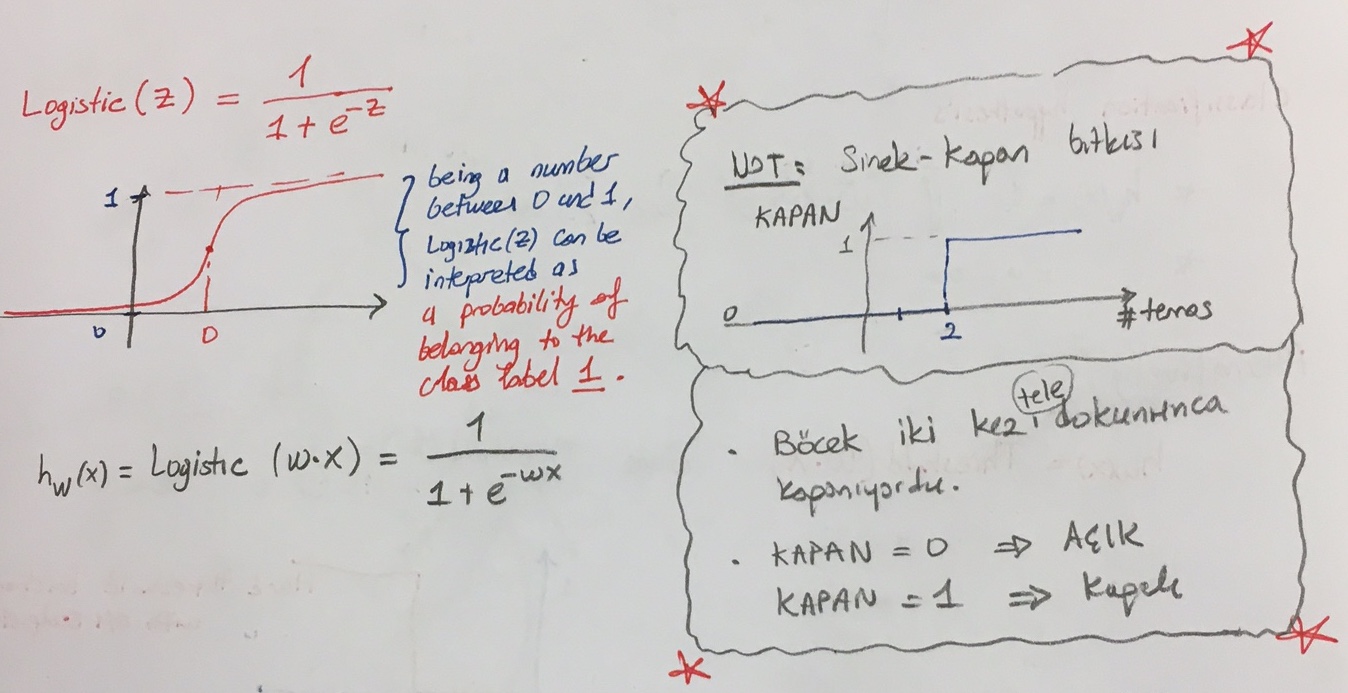 Logistic(z) = 1 / (1 + e^-z)
1
0
0
being a number
between 0 and 1,
Logistic(z) can be
interpreted as
a probability of
belonging to the
class label 1.
h_w(x) = Logistic (w·x) = 1 / (1 + e^-wx)
NOT: Sinek-Kapan bitkisi
KAPAN
1
0
2
#temas
tele
. Böcek iki kez dokununca
kapanıyordu.
. KAPAN = 0 ⇒ AÇIK
KAPAN = 1 ⇒ Kapalı